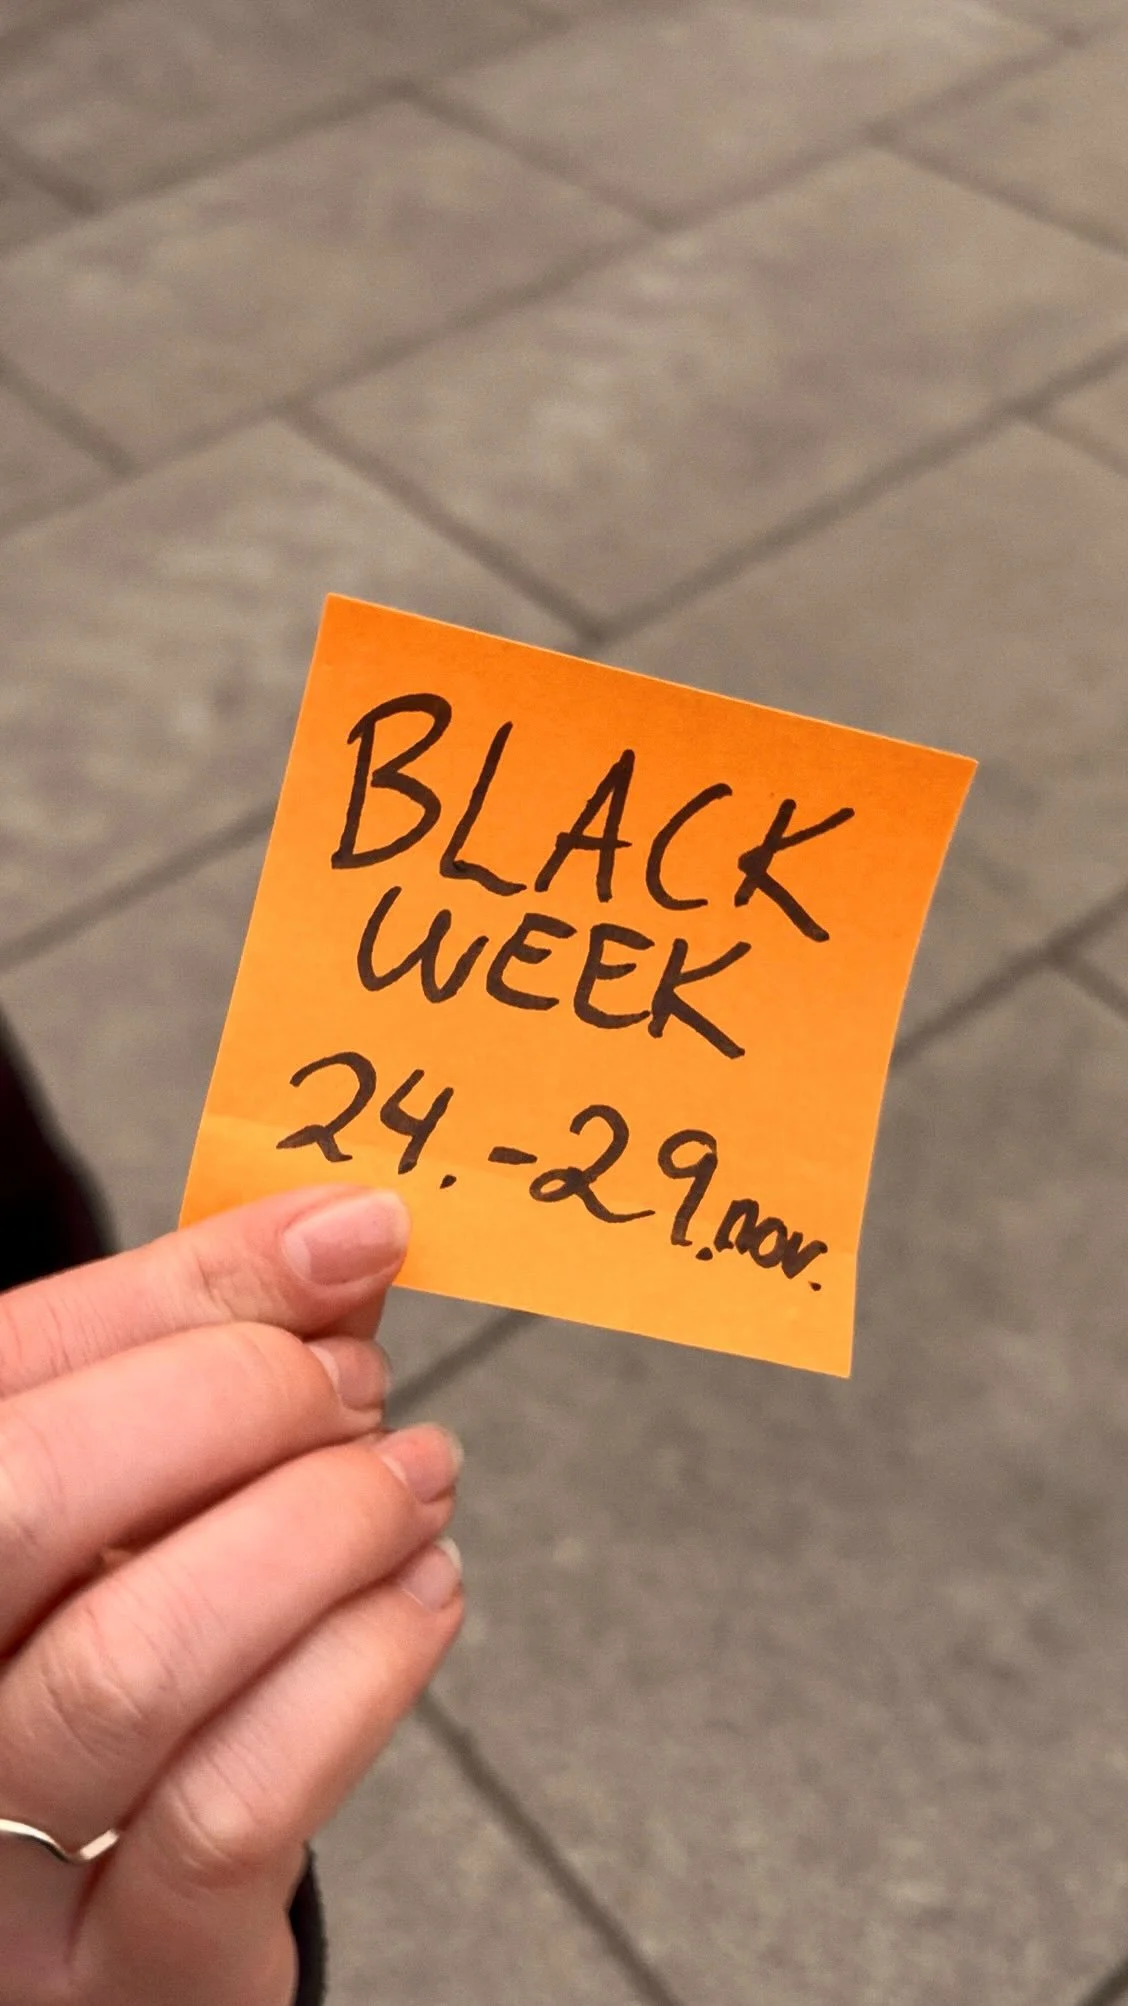 BLACK
WEEK
24.-29.nov.